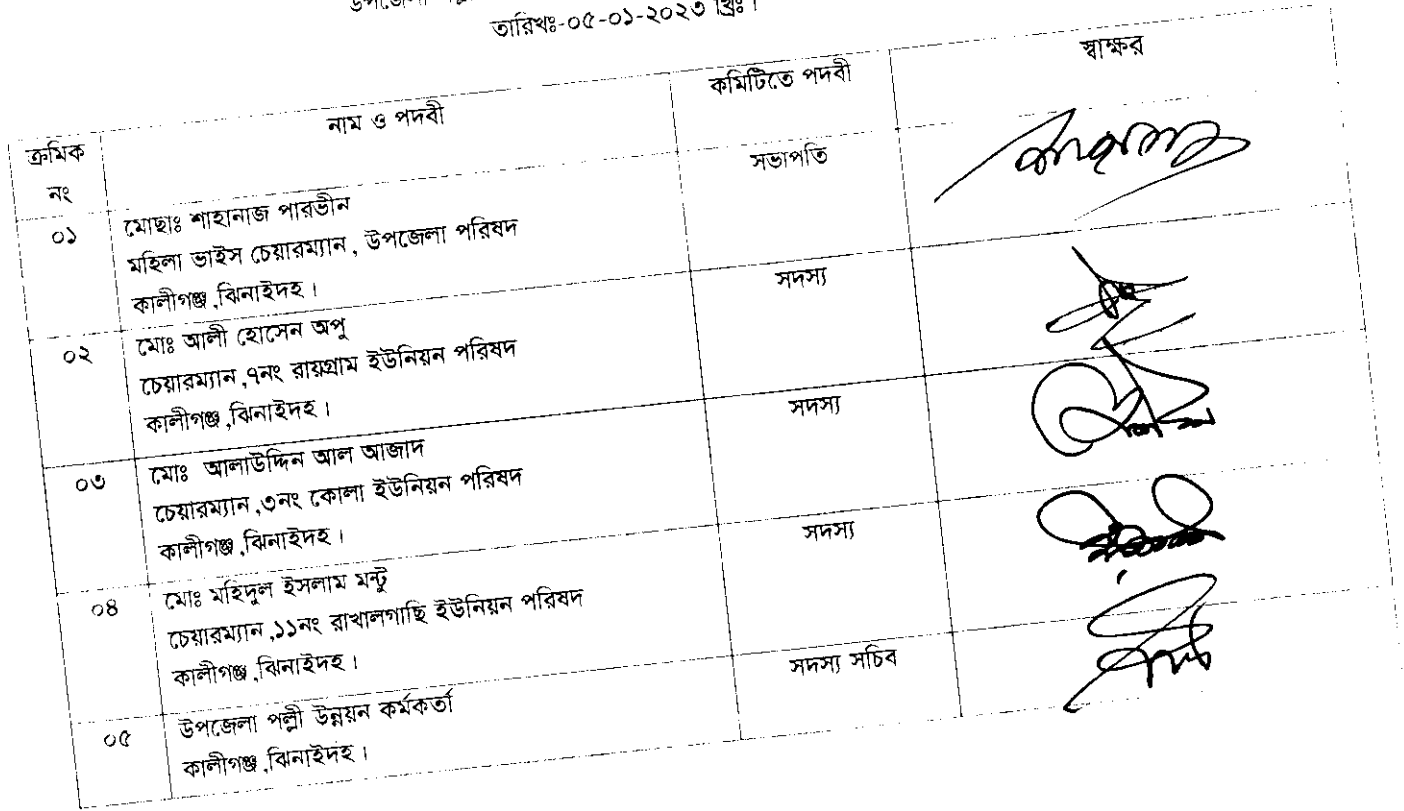 উপজেলা
তারিখঃ-০৫-০১-২০২৩ খ্রিঃ।
ক্রমিক নং নাম ও পদবী কমিটিতে পদবী স্বাক্ষর
০১ মোছাঃ শাহানাজ পারভীন সভাপতি
মহিলা ভাইস চেয়ারম্যান, উপজেলা পরিষদ
কালীগঞ্জ,ঝিনাইদহ।
০২ মোঃ আলী হোসেন অপু সদস্য
চেয়ারম্যান,৭নং রায়গ্রাম ইউনিয়ন পরিষদ
কালীগঞ্জ,ঝিনাইদহ।
০৩ মোঃ আলাউদ্দিন আল আজাদ সদস্য
চেয়ারম্যান,৩নং কোলা ইউনিয়ন পরিষদ
কালীগঞ্জ,ঝিনাইদহ।
০৪ মোঃ মহিদুল ইসলাম মন্টু সদস্য
চেয়ারম্যান,১১নং রাখালগাছি ইউনিয়ন পরিষদ
কালীগঞ্জ,ঝিনাইদহ।
০৫ উপজেলা পল্লী উন্নয়ন কর্মকর্তা সদস্য সচিব
কালীগঞ্জ,ঝিনাইদহ।